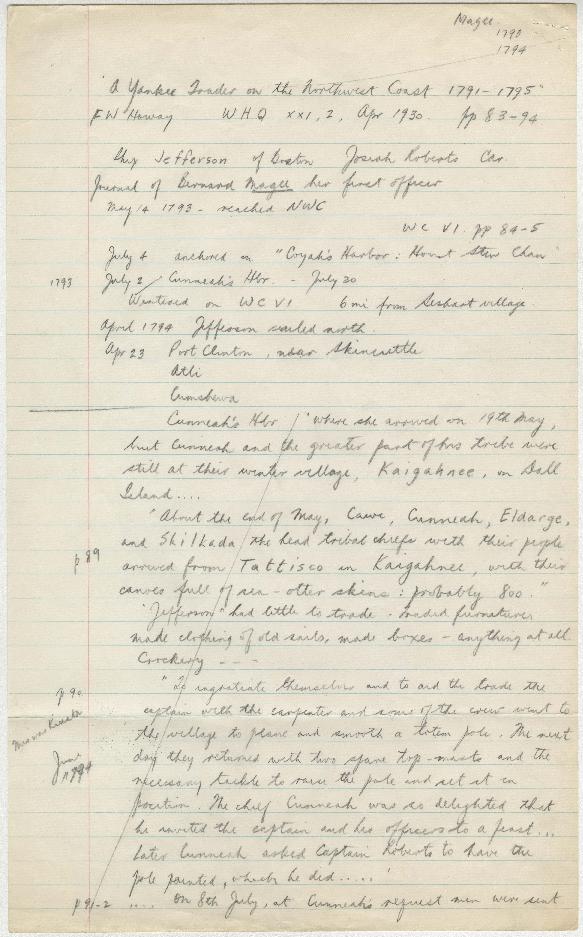 Magee
1793
1794
"A Yankee Trader on the Northwest Coast 1791-1795"
FW Howay WHQ XXI, 2, Apr 1930. pp 83-94
Ship Jefferson of Boston Josiah Roberts Cap.
Journal of Bernard Magee her first officer
May 14 1793 - reached NWC
WC VI. pp 84-5
July 4 anchored in "Coyah's Harbor: Hount Stew Chan"
1793 July 2 Cunneah's Hbr. - July 20
Wintered on WC VI 6 mi from Seshart village.
April 1794 Jefferson sailed north.
Apr 23 Port Clinton, near Skincuttle
Atli
Cumshewa
Cunneah's Hbr "where she arrived on 19th May,
but Cunneah and the greater part of his tribe were
still at their winter village, Kaigahnee, on Dall
Island....
"About the end of May, Cawe, Cunneah, Eldarge,
and Shilkada the head tribal chiefs with their people
p 89 arrived from Tattisco in Kaigahnee, with their
canoes full of sea-otter skins: probably 800."
"Jefferson" had little to trade - traded furniture,
made clothing of old sails, made boxes - anything at all
Crockery - - -
p 90 "To ingratiate themselves and to aid the trade the
captain with the carpenter and some of the crew went to
the village to plane and smooth a totem pole. The next
June 1794 day they returned with two spare top-masts and the
necessary tackle to raise the pole and set it in
position. The chief Cunneah was so delighted that
he invited the captain and his officers to a feast...
Later Cunneah asked Captain Roberts to have the
pole painted, which he did....."
p 91-2 .... On 8th July, at Cunneah's request men were sent